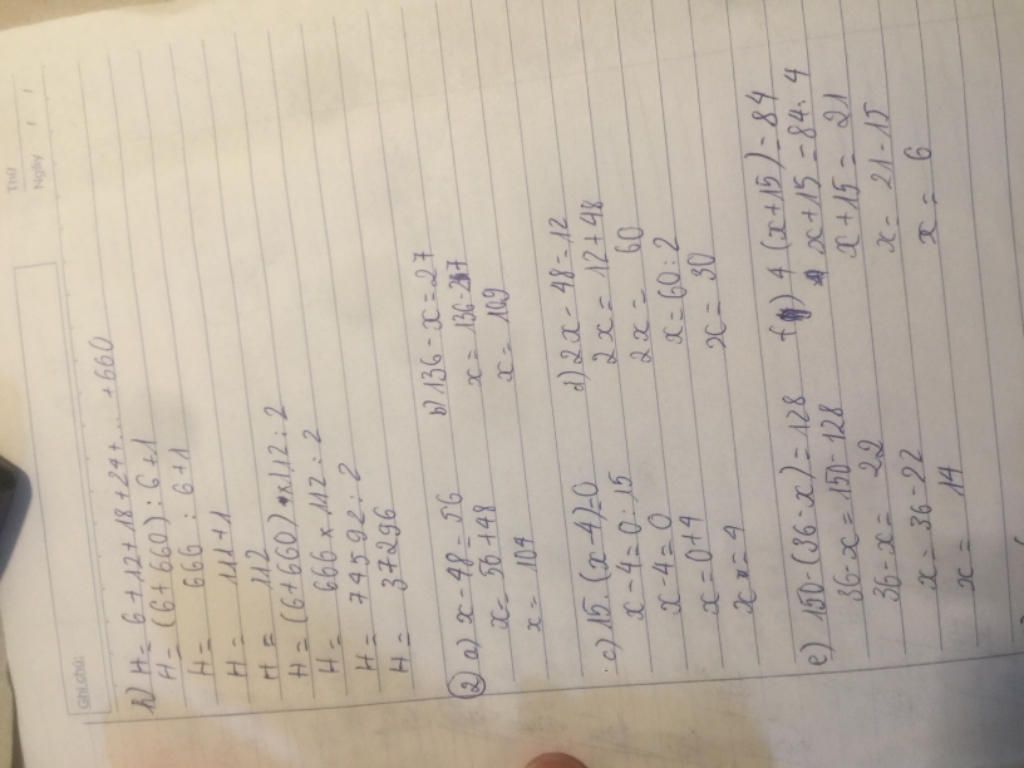 Thứ
Ngày / /
Ghi chú:
h) H = 6 + 12 + 18 + 24 + ... + 660
H = (6 + 660) : 6 + 1
H = 666 : 6 + 1
H = 111 + 1
H = 112
H = (6 + 660) x 112 : 2
H = 666 x 112 : 2
H = 74592 : 2
H = 37296
2) a) x - 48 = 56
x = 56 + 48
x = 104
b) 136 - x = 27
x = 136 - 27
x = 109
c) 15 . (x - 4) = 0
x - 4 = 0 : 15
x - 4 = 0
x = 0 + 4
x = 4
d) 2x - 48 = 12
2x = 12 + 48
2x = 60
x = 60 : 2
x = 30
e) 150 - (36 - x) = 128
36 - x = 150 - 128
36 - x = 22
x = 36 - 22
x = 14
f) 4 (x + 15) = 84
x + 15 = 84 : 4
x + 15 = 21
x = 21 - 15
x = 6